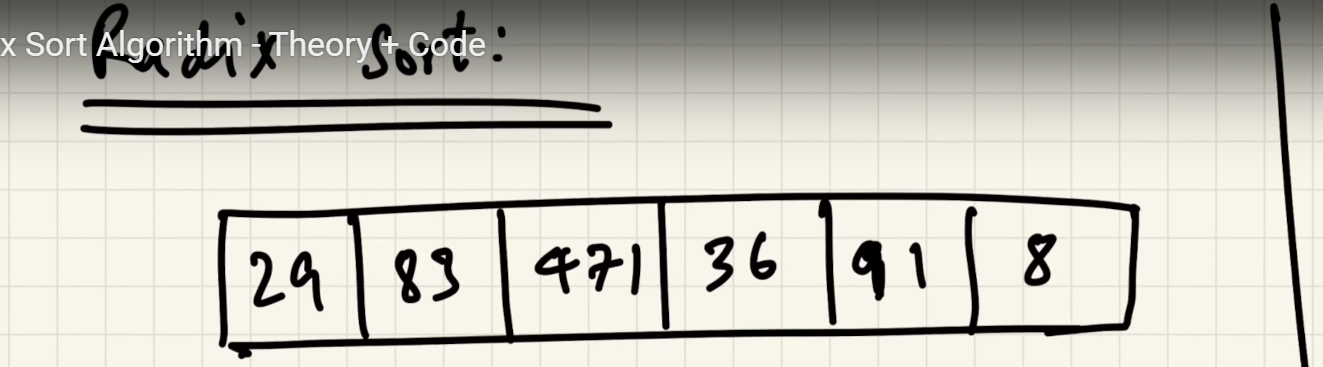 x Sort Algorithm - Theory + Code
Radix Sort:
29 83 471 36 91 8